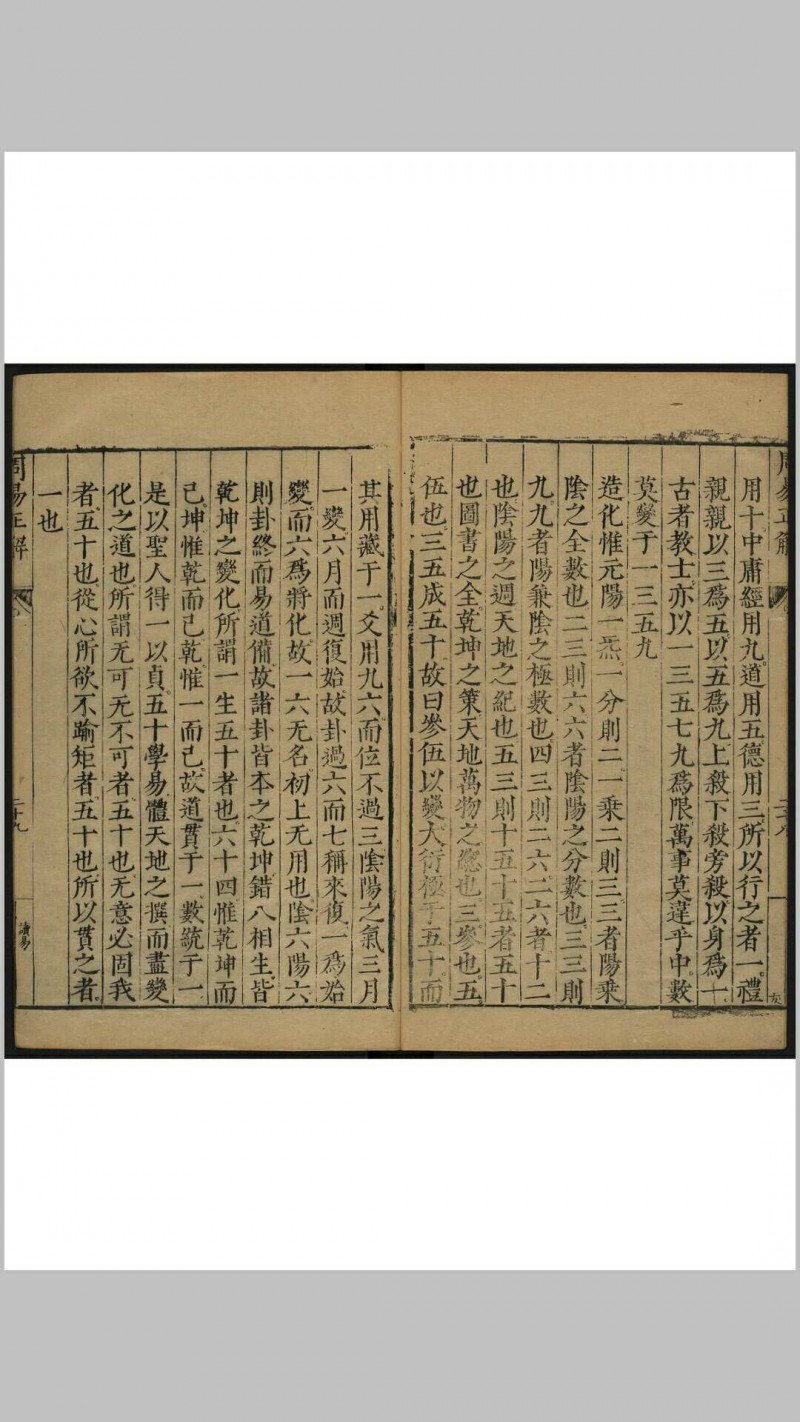 周易正解
用十中庸經用九道用五德用三所以行之者一禮
親親以三爲五以五爲九上殺下殺旁殺以身爲十
古者教士亦以一三五七九爲限萬事莫違乎中數
莫變于一三五九
造化惟元陽一炁一分則二一乘二則三三者陽乘
陰之全數也二三則六六者陰陽之分數也三三則
九九者陽兼陰之極數也四三則二六二六者十二
也陰陽之週天地之紀也五三則十五十五者五十
也圖書之全乾坤之策天地萬物之總也三參也五
伍也三五成五十故曰參伍以變大衍極于五十而
其用藏于一爻用九六而位不過三陰陽之氣三月
一變六月而週復始故卦過六而七稱來復一爲始
變而六爲將化故一六无名初上无用也陰六陽六
則卦終而易道備故諸卦皆本之乾坤錯八相生皆
乾坤之變化所謂一生五十者也六十四惟乾坤而
已坤惟乾而已乾惟一而已故道貫于一數統于一
是以聖人得一以貞五十學易體天地之撰而盡變
化之道也所謂无可无不可者五十也无意必固我
者五十也從心所欲不踰矩者五十也所以貫之者
一也
周易正解
二十九
讀易